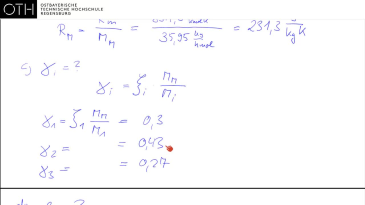 OTH OSTBAYERISCHE
TECHNISCHE HOCHSCHULE
REGENSBURG
R_M = / M_M = / 35,95 kg/kmol = 231,3 / kg K
c) γ_i = ?
γ_i = ξ_i M_M / M_i
γ_1 = ξ_1 M_M / M_1 = 0,3
γ_2 = = 0,43
γ_3 = = 0,27